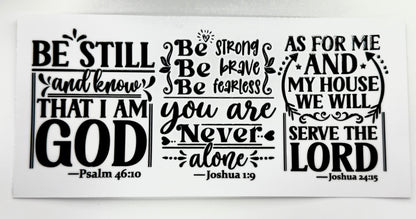 BE STILL
and know
THAT I AM
GOD
—Psalm 46:10
Be strong
Be brave
Be fearless
you are
Never
alone
—Joshua 1:9
AS FOR ME
AND
MY HOUSE
WE WILL
SERVE THE
LORD
—Joshua 24:15